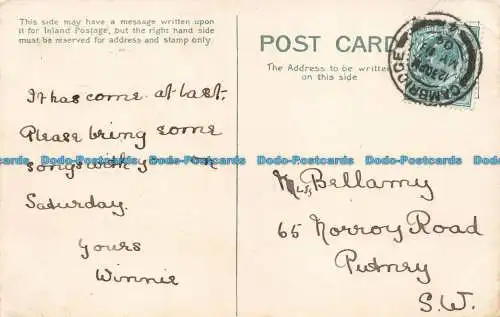 This side may have a message written upon
it for Inland Postage, but the right hand side
must be reserved for address and stamp only.
It has come at last.
Please bring some
songs with y on
Saturday.
Yours
Winnie
POST CARD
The Address to be written
on this side
CAMBRIDGE
12.30PM
Bellamy
65 Norroy Road
Putney
S.W.
Dodo-Postcards Dodo-Postcards Dodo-Postcards Dodo-Postcards Dodo-Postcards